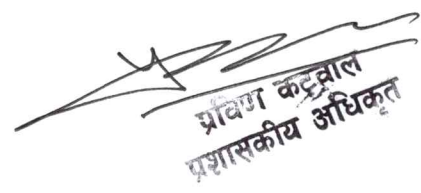 प्रविण कटुवाल
प्रशासकीय अधिकृत